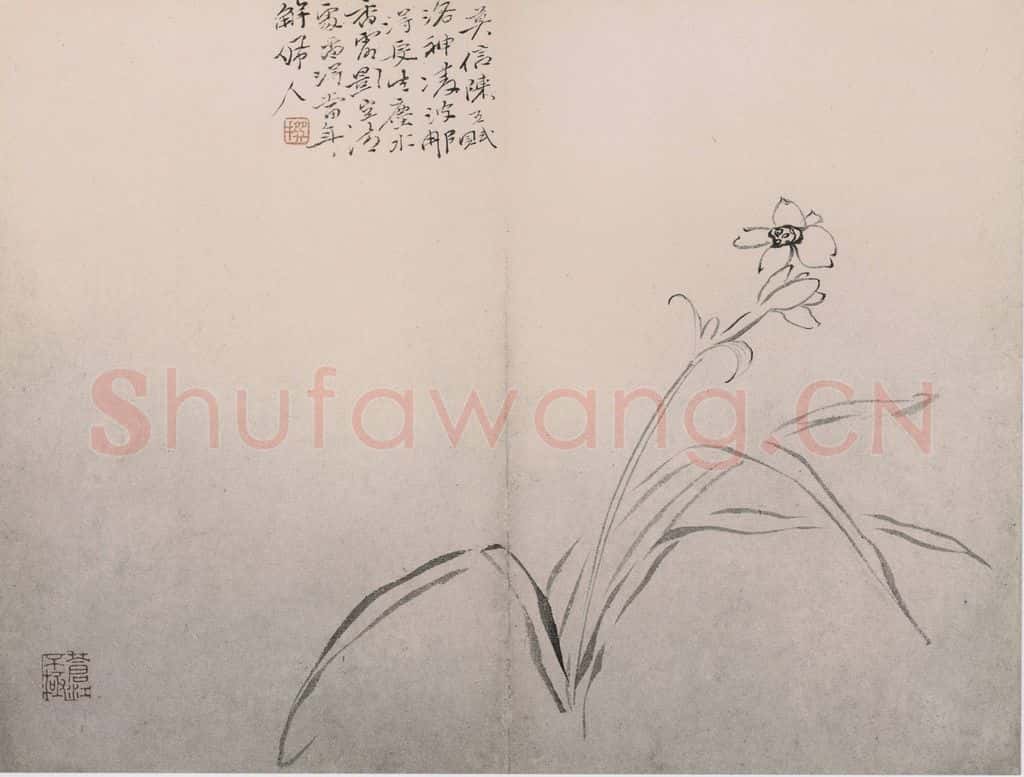 莫信陳王賦
洛神凌波那
得更生塵水
香露影空清
處留得當年
解佩人
Shufawang.CN